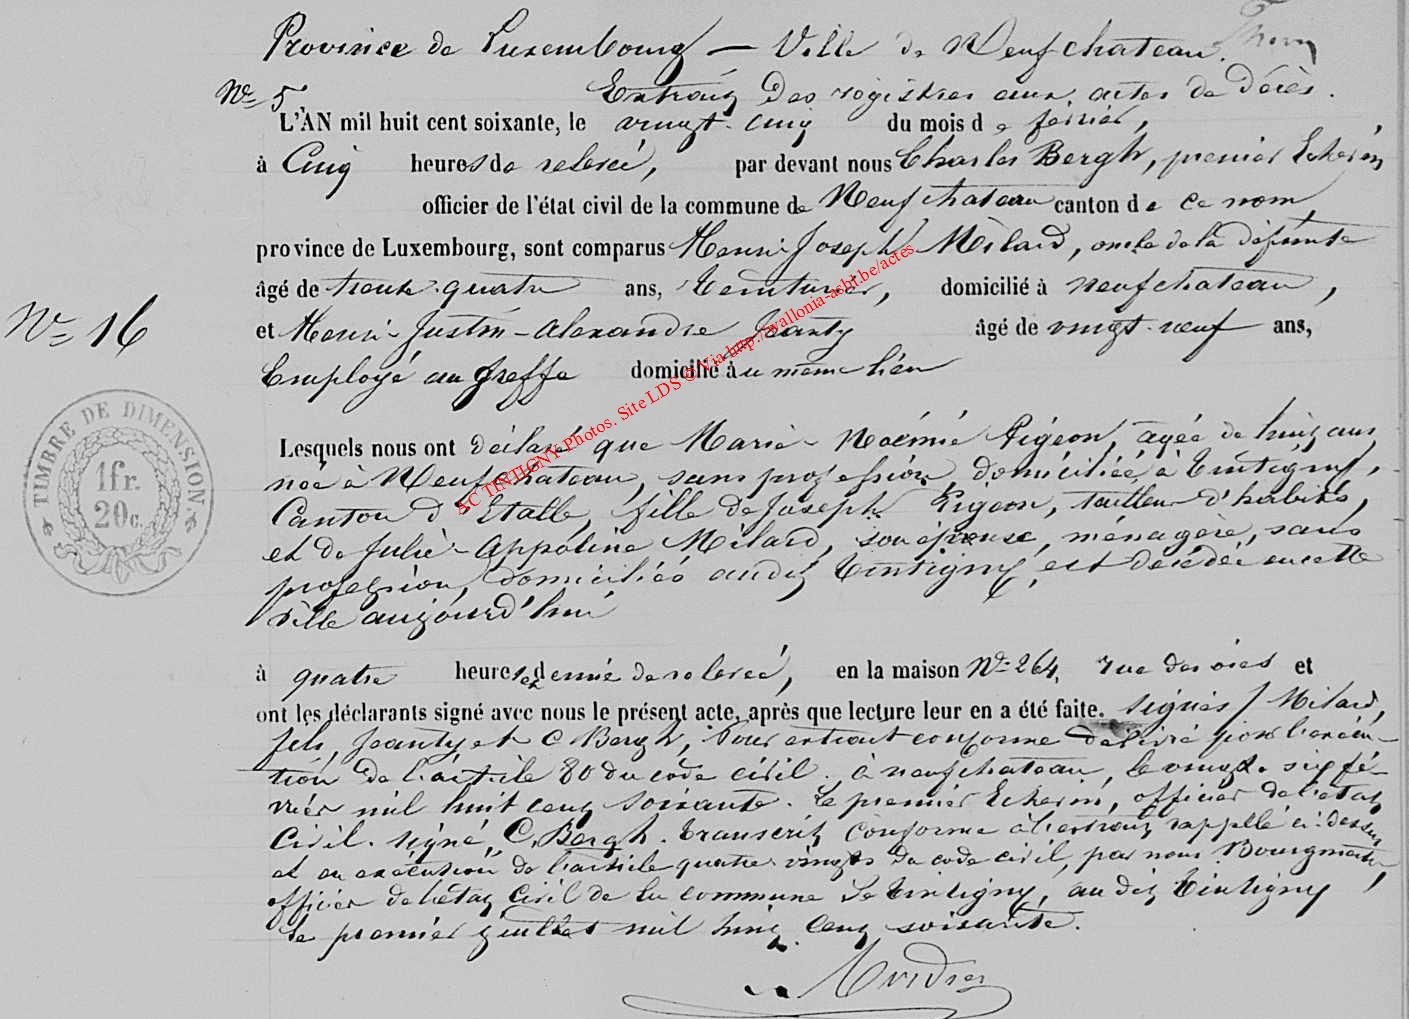 Province de Luxembourg — Ville de Neufchateau.
N° 5 Extrait des registres aux actes de Décès.
L'AN mil huit cent soixante, le vingt-cinq du mois de février,
à Cinq heures de relevée, par devant nous Charles Bergh, premier Echevin
officier de l'état civil de la commune de Neufchateau canton de ce nom,
province de Luxembourg, sont comparus Henri-Joseph Milard, oncle de la défunte
âgé de trente-quatre ans, Teinturier, domicilié à Neufchateau,
et Henri-Justin-Alexandre Jeanty âgé de vingt-neuf ans,
N° 16
Employé au Greffe domicilié au même lieu
Lesquels nous ont déclaré que Marie-Noémie Pigeon, agée de huit ans
née à Neufchateau, sans profession, domiciliée à Tintigny,
Canton d'Etalle, fille de Joseph Pigeon, tailleur d'habits,
et de Julie-Appoline Milard, son épouse, ménagère, sans
profession, domiciliés audit Tintigny, est décédée en cette
ville aujourd'hui
à quatre heures et demie de relevée, en la maison N° 264, rue des oies et
ont les déclarants signé avec nous le présent acte, après que lecture leur en a été faite. signés / Milard,
fils, Jeanty et C Bergh, Pour extrait conforme délivré pour l'exécu-
tion de l'article 80 du code civil. à neufchateau, le vingt-six fé-
vrier mil huit cent soixante. Le premier Echevin, officier de l'état
Civil. signé, C. Bergh. Transcrit conforme à l'extrait rappellé ci-dessus
et en exécution de l'article quatre-vingts du code civil, par nous Bourgmestre,
officier de l'état Civil de la commune de Tintigny, au dit Tintigny
le premier juillet mil huit cent soixante.
TIMBRE DE DIMENSION.
1 fr.
20 c.
AC TINTIGNY Photos. Site LDS © Via http://wallonia-asbl.be/actes